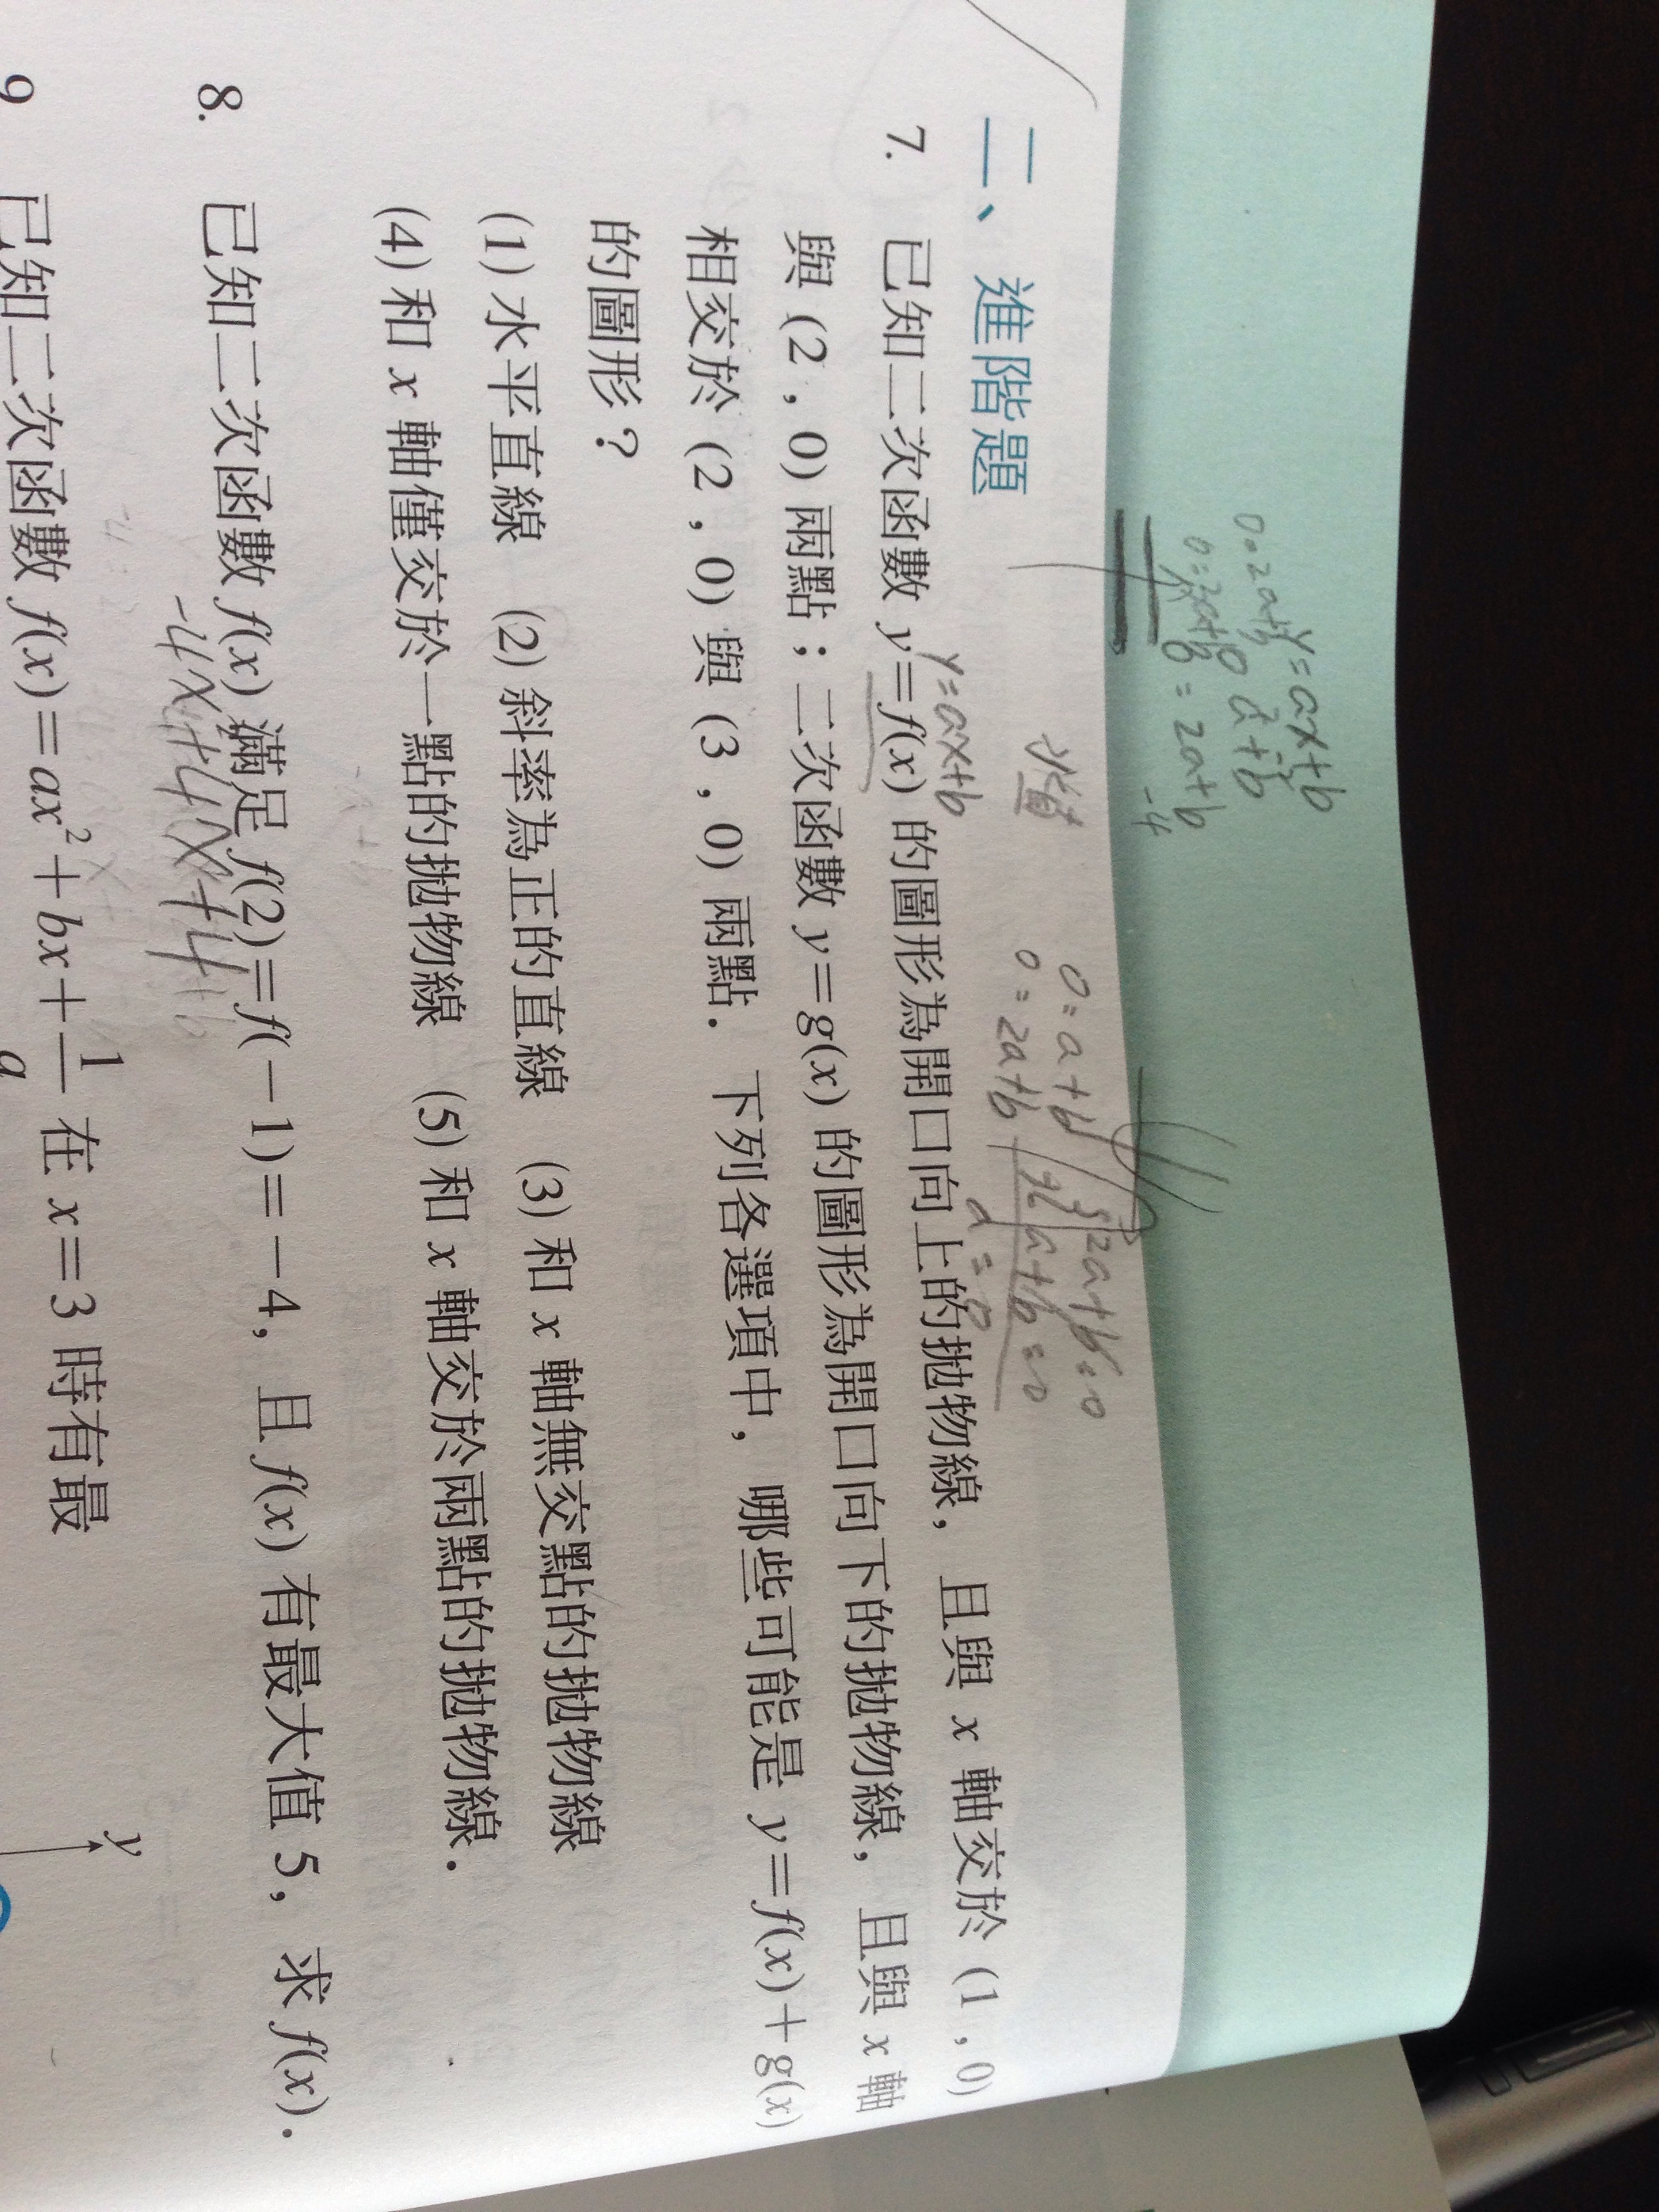 y=ax+b
0=2a+b
0=2a+b
=2a+b
-4
0=a+b
2a+b=0
0=2a+b
a+b=0
a=0
二、進階題
y=ax+b
7. 已知二次函數 y=f(x) 的圖形為開口向上的拋物線，且與 x 軸交於 (1,0)
與 (2,0) 兩點；二次函數 y=g(x) 的圖形為開口向下的拋物線，且與 x 軸
相交於 (2,0) 與 (3,0) 兩點．下列各選項中，哪些可能是 y=f(x)+g(x)
的圖形？
(1) 水平直線 (2) 斜率為正的直線 (3) 和 x 軸無交點的拋物線
(4) 和 x 軸僅交於一點的拋物線 (5) 和 x 軸交於兩點的拋物線．
8. 已知二次函數 f(x) 滿足 f(2)=f(−1)=−4，且 f(x) 有最大值 5，求 f(x)．
9 已知二次函數 f(x)=ax²+bx+1/a 在 x=3 時有最
y